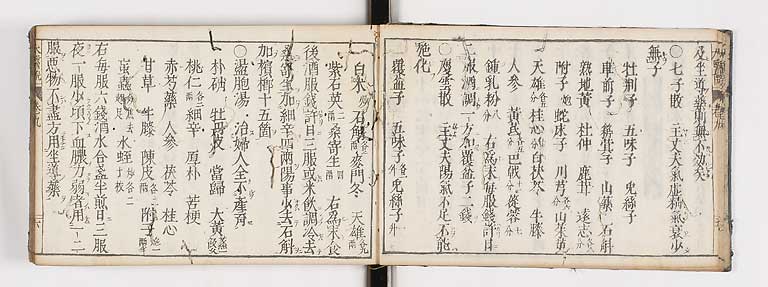 及坐導藥則無不効矣
○七子散 主丈夫風虛精氣衰少
無子
牡荊子 五味子 兔絲子
車前子 菥蓂子 山藥 石斛
熟地黃 杜仲 鹿茸 遠志
附子 蛇床子 川芎 山茱萸
天雄 桂心 白茯苓 牛膝
人參 黃芪 巴戟 蓯蓉
鍾乳粉 右為末每服錢許日
二服酒調一方加覆盆子二錢
○慶雲散 主丈夫陽氣不足不能
施化
覆盆子 五味子 兔絲子
白朮 石斛 麥門冬 天雄
紫石英 桑寄生 右為末食
後酒服錢許日三服或米飲調冷去
寄生加細辛四兩陽事少去石斛
加檳榔十五箇
○盪胞湯 治婦人全不產育
朴硝 牡丹皮 當歸 大黃
桃仁 細辛 厚朴 苦梗
赤芍藥 人參 茯苓 桂心
甘草 牛膝 陳皮 附子
虻蟲 水蛭
右每服六錢酒水合盞半煎日三服
夜一服少頃下血膿力弱者用一二
服惡物不盡方用坐導藥